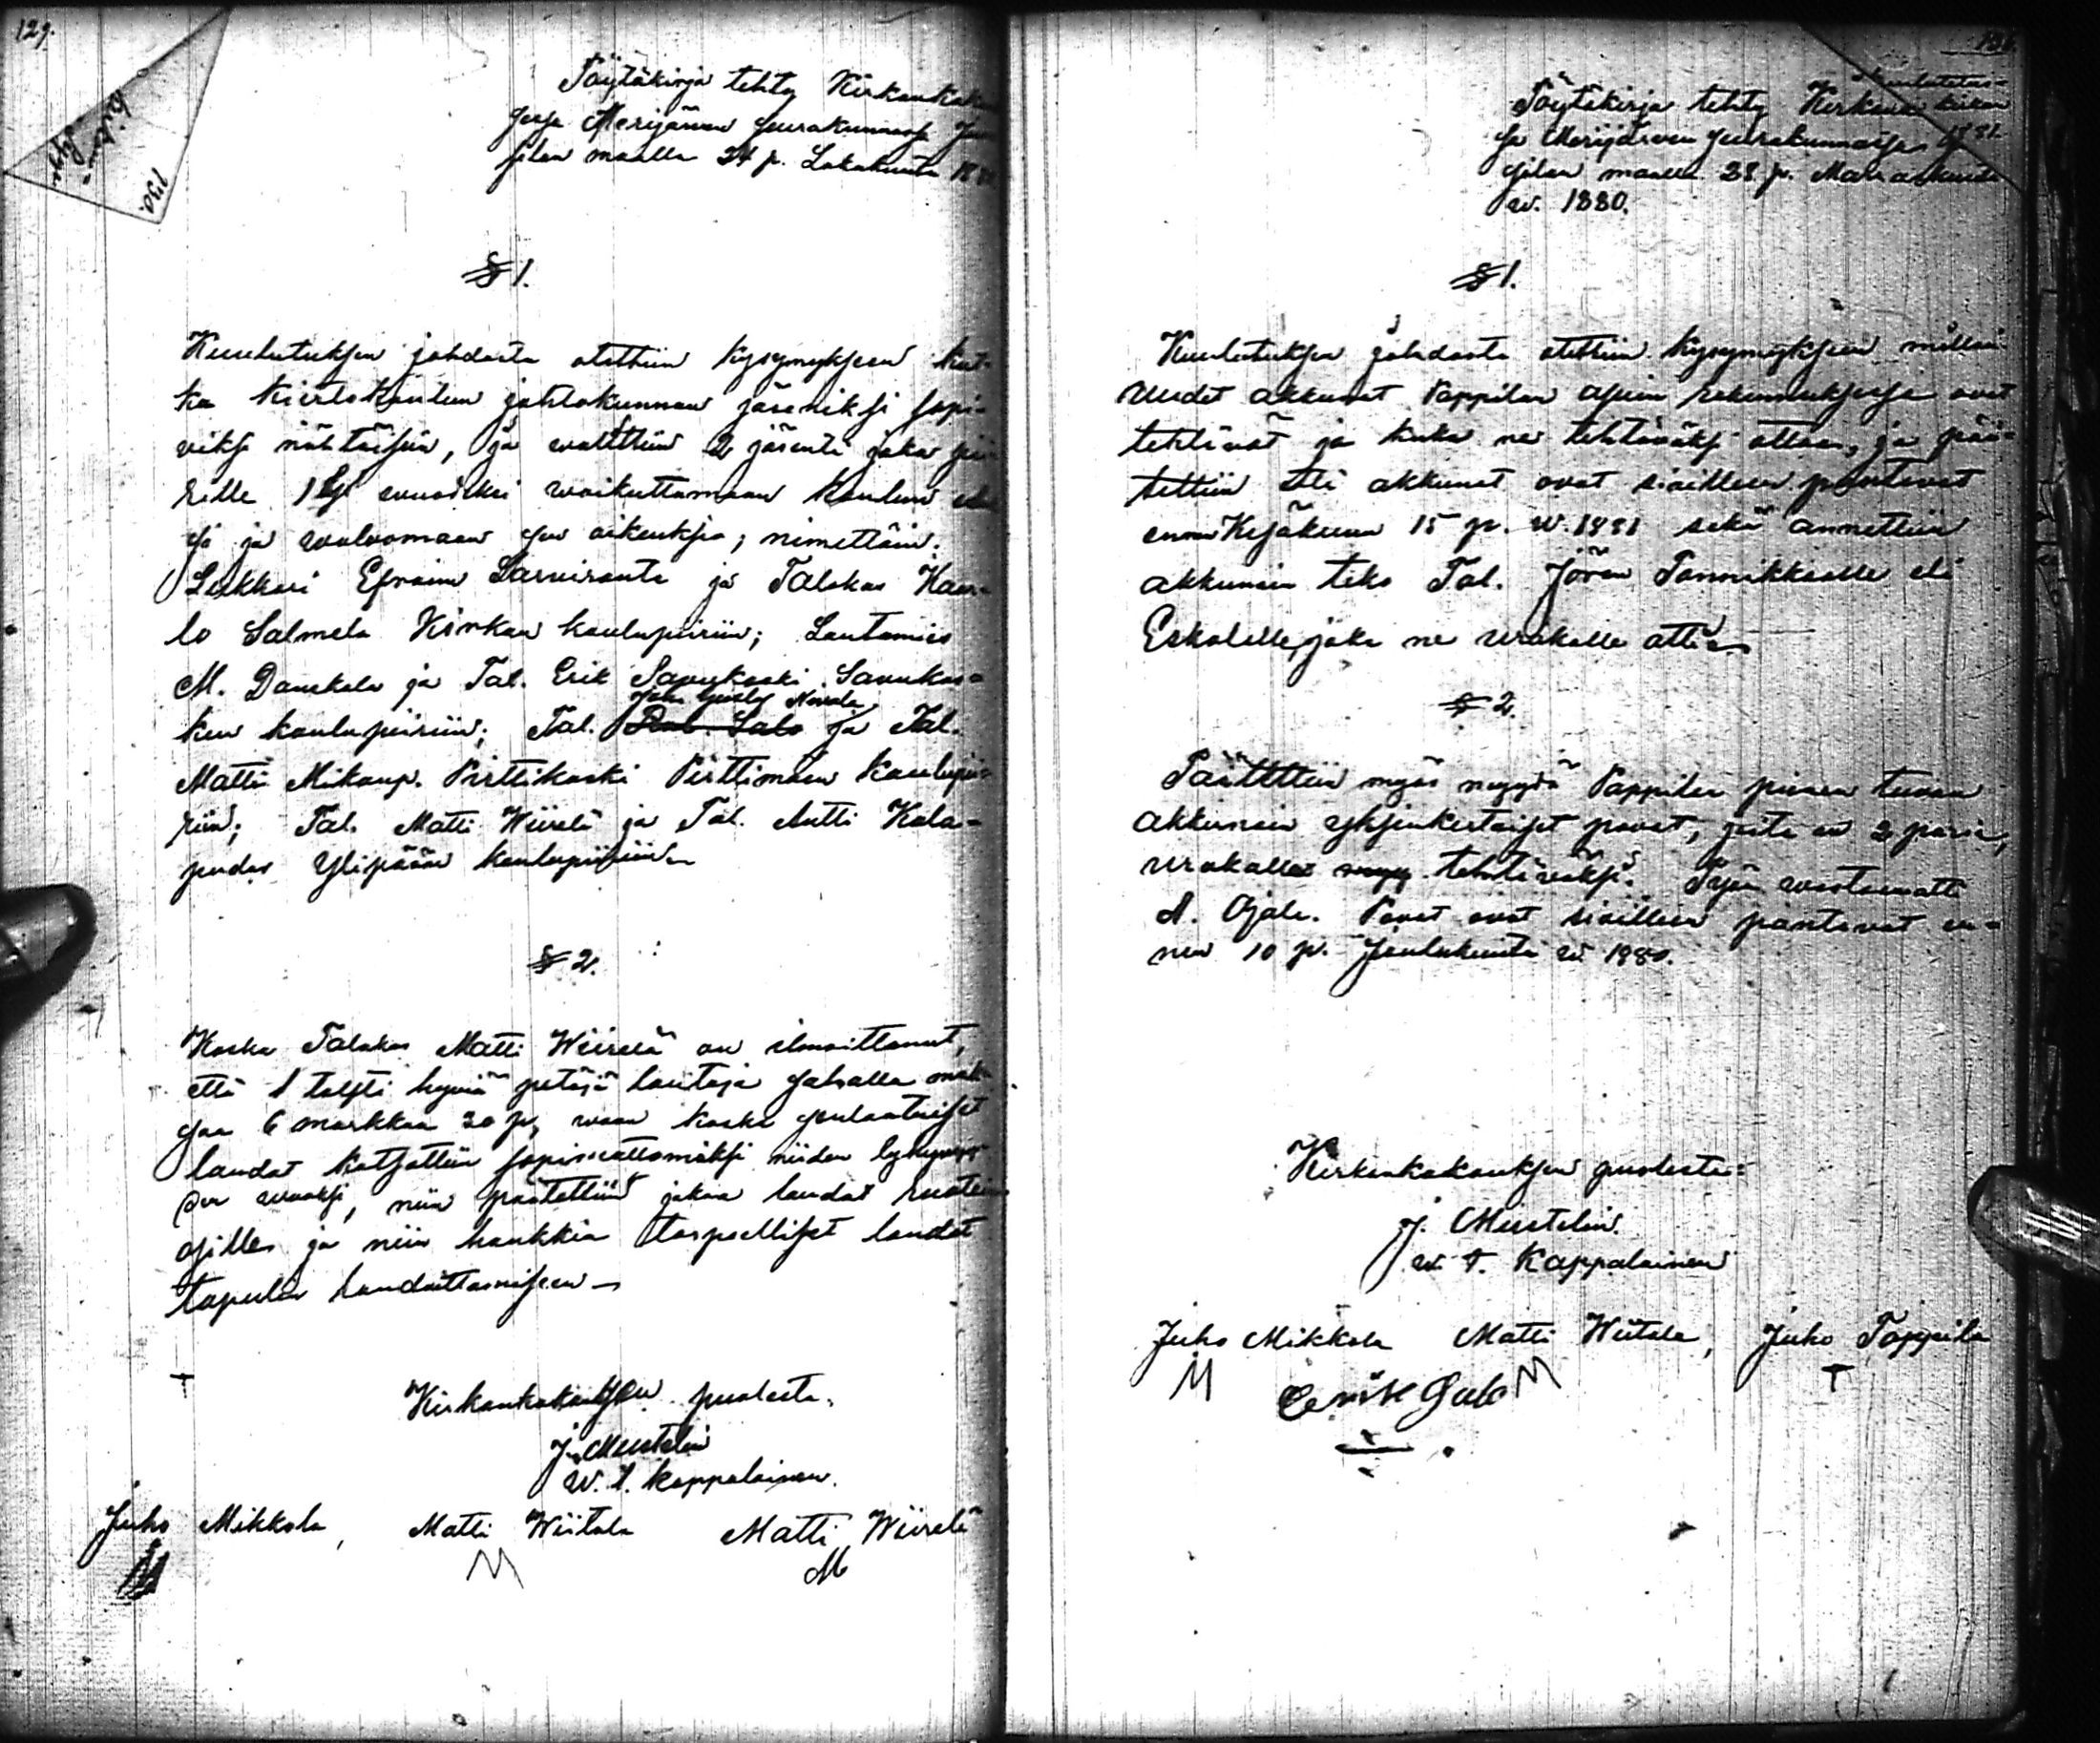 129.
130.
Pöytäkirja tehty Kirkonkokouk
sessa Merijärven seurakunnassa
silan maalla 24 p. Lokakuuta 18
§ 1.
Kuulutuksen johdosta otettiin kysymykseen kut-
ka kiertokoulun johtokunnan jäseniksi sopi-
viksi nähtäisiin, ja walittiin 2 jäsentä joka pii
rille 1 wuodeksi waikuttamaan koulun
ja walvomaan sen oikeuksia; nimittäin:
Lukkari Efraim Sarviranta ja Talokas Kaar-
lo Salmela Kirkon koulupiiriin; Lautamies
M. Danskola ja Tal. Erik Savukoski Savukos-
Juho Nevala
ken koulupiiriin; Tal. Rob. Salo ja Tal.
Matti Mikonp. Pirttikoski Pirttimaan koulupii-
riin; Tal. Matti Wiirelä ja Tal. Antti Kala-
pudas Ylipään koulupiiriin
§ 2.
Koska Talokas Matti Wiirelä on ilmoittanut,
että 1 toltti hyviä petäjä lautoja sahalla mak
saa 6 markkaa 20 p, waan koska senlaatuiset
laudat katsottiin sopimattomiksi niiden lyhyyy
den wuoksi, niin päätettiin jakaa laudat
osille ja niin hankkia tarpeelliset laudat
tapulin laudoittamiseen
Kirkonkokouksen puolesta.
J. Mustelin
w. t. kappalainen.
Juho Mikkola, Matti Wiitala Matti Wiirelä
M M M
Pöytäkirja tehty Kirkon kokou
sa Merijärven seurakunnassa
silan maalla 28 p. Marraskuuta
w. 1880.
§ 1.
Kuulutuksen johdosta otettiin kysymykseen milloin
uudet akkunat Pappilan asuin rakennuksessa ovat
tehtävät ja kuka ne tehtäväksi ottaa, ja pää-
tettiin että akkunat ovat sioilleen pantavat
ennen Kesäkuun 15 p. w. 1881 sekä annettiin
akkunain teko Tal. Jören Pannikkoalle eli
Eskolalle, joka ne urakalle otti
§ 2.
Päätettiin myös myydä Pappilan pienen tuvan
akkunain yksinkertaiset puvat, joita on 2 paria,
urakalle tehtäväksi. Työn wastaanotti
A. Ojala. Puvat ovat sioilleen pantavat en-
nen 10 p. Joulukuuta w. 1880.
Kirkonkokouksen puolesta:
J. Mustelin.
w. t. Kappalainen
Juho Mikkola Matti Wiitala, Juho Pappila
M M T
Eerik Salo